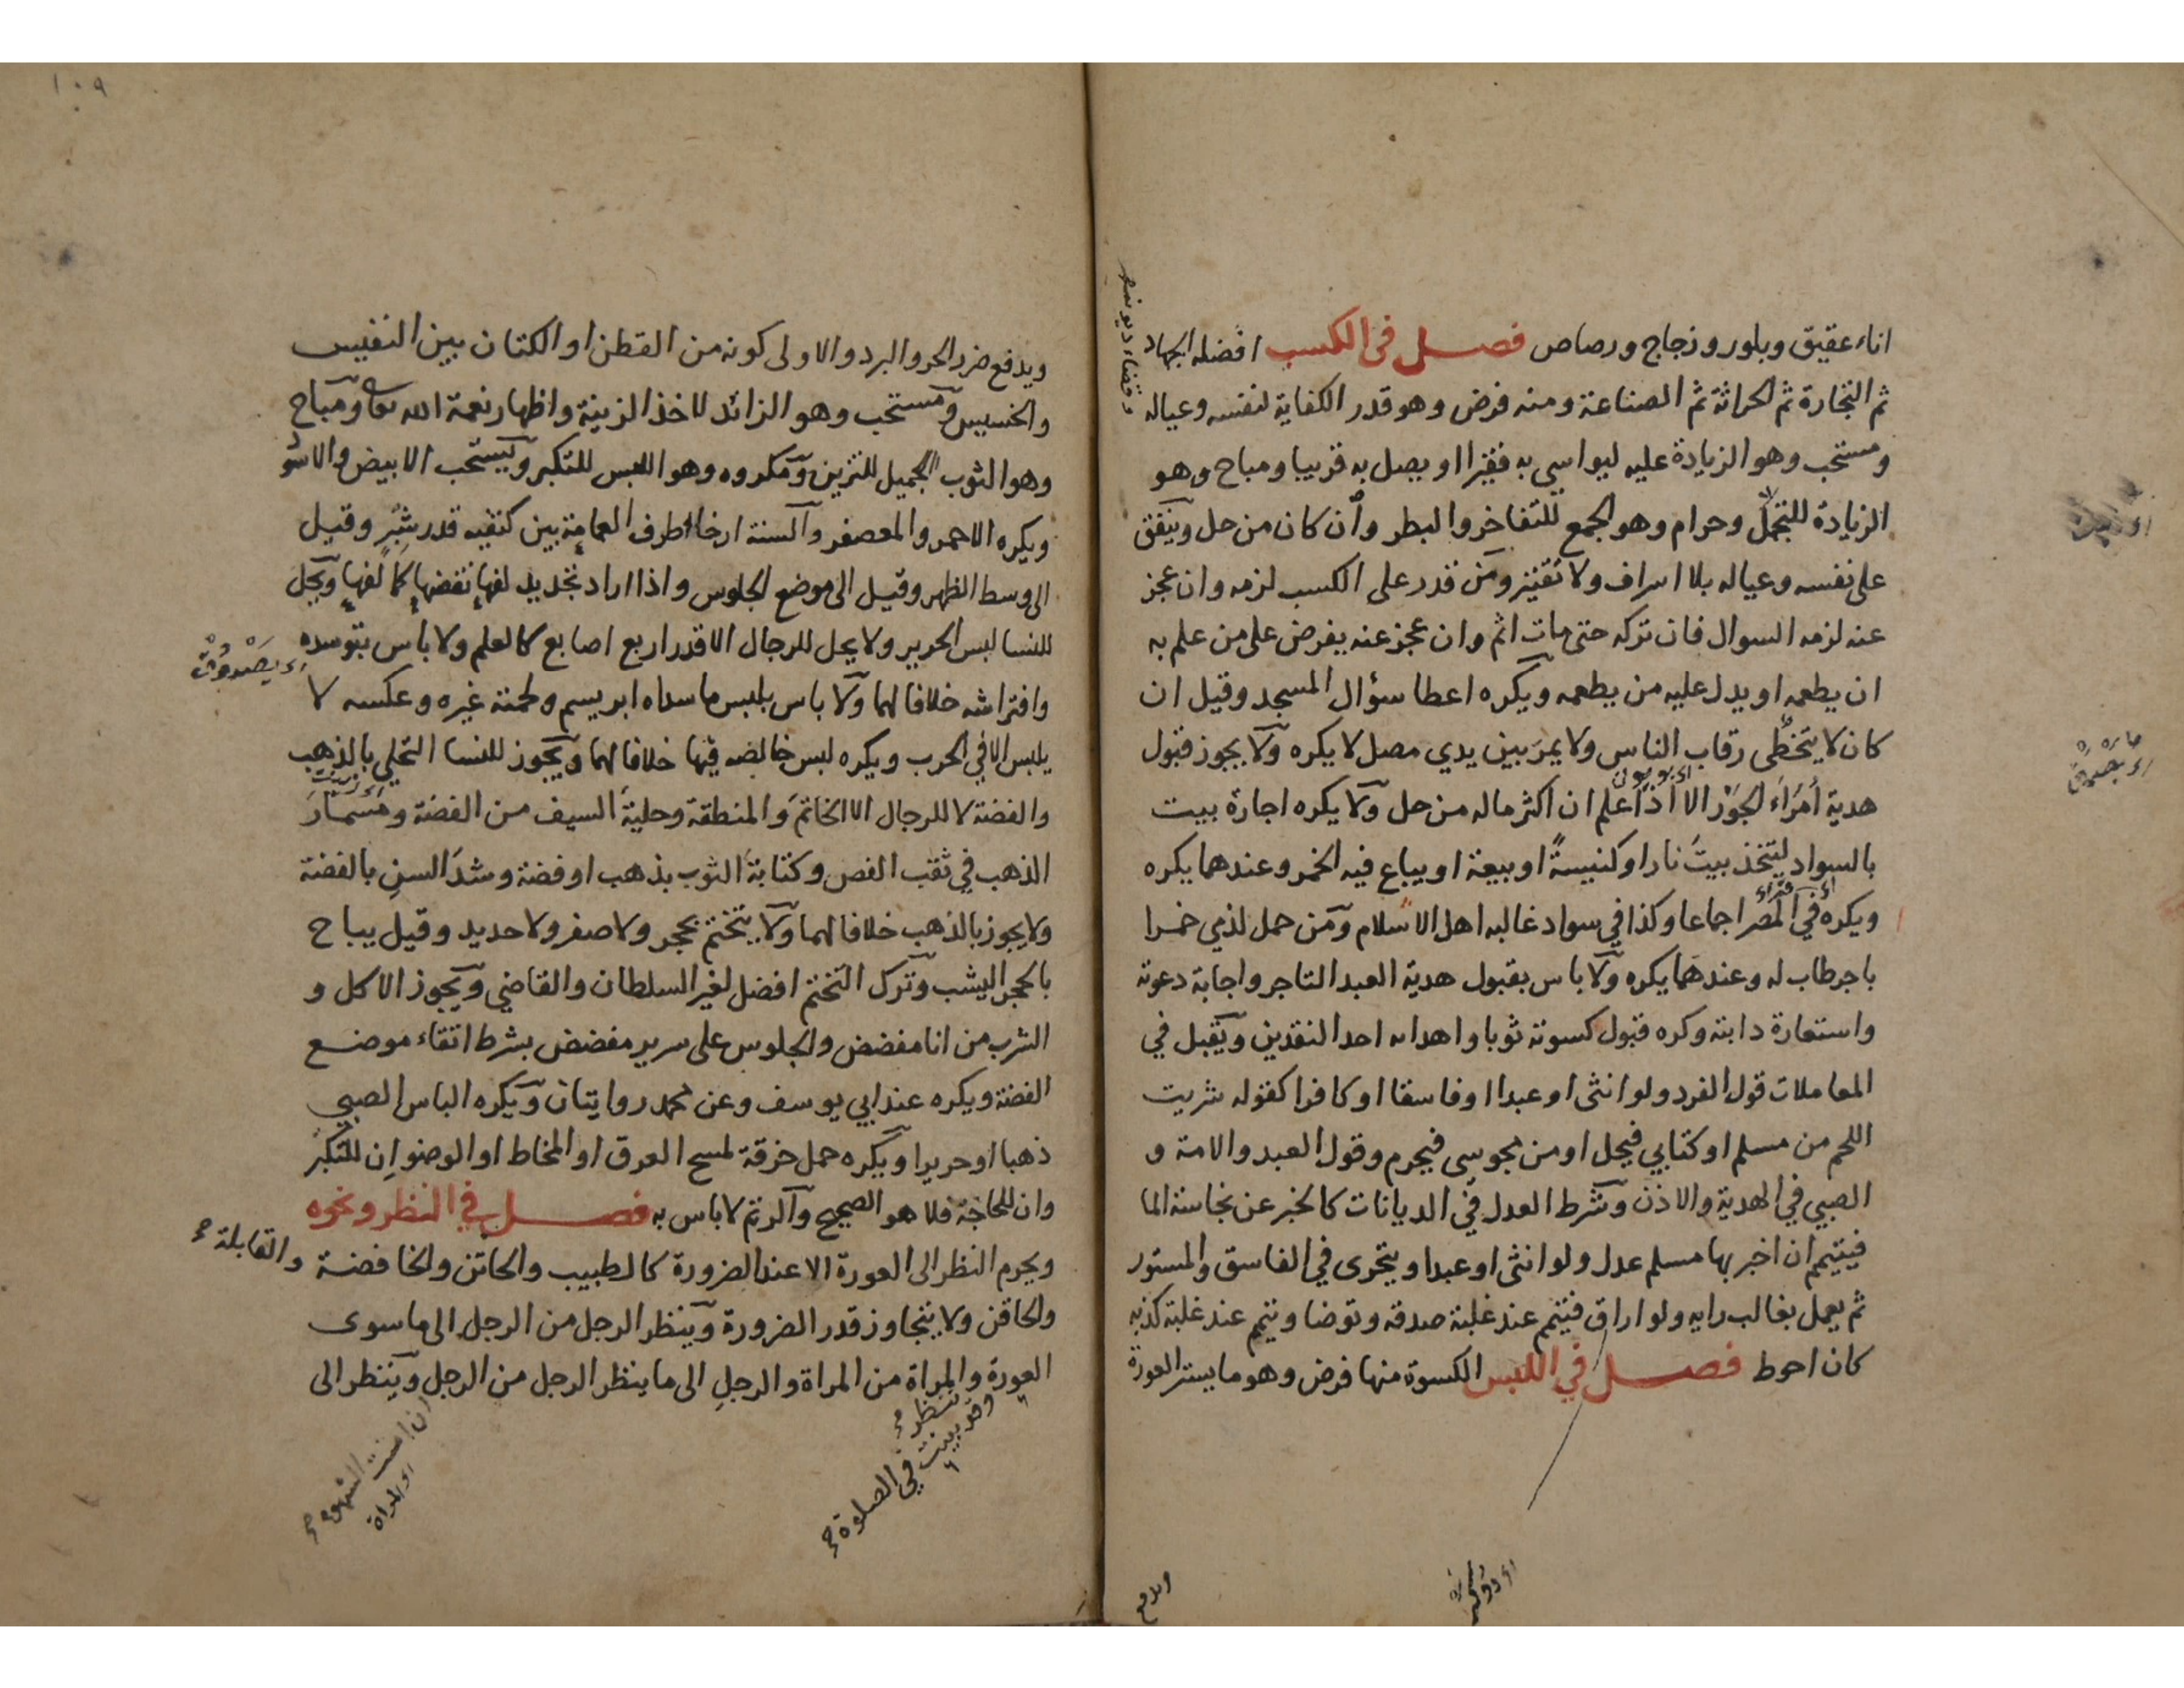 اناء عقيق وبلور وزجاج ورصاص فصل في الكسب افضله الجهاد
ثم التجارة ثم الحراثة ثم الصناعة ومنه فرض وهو قدر الكفاية لنفسه وعياله
وقضاء ديونه
ومستحب وهو الزيادة عليه ليواسي به فقيرا او يصل به قريبا ومباح وهو
الزيادة للتجمل وحرام وهو الجمع للتفاخر والبطر وان كان من حل وينفق
على نفسه وعياله بلا اسراف ولا تقتير ومن قدر على الكسب لزمه وان عجز
عنه لزمه السوال فان تركه حتى مات اثم وان عجز عنه يفرض على من علم به
ان يطعمه او يدل عليه من يطعمه ويكره اعطا سؤال المسجد وقيل ان
كان لا يتخطى رقاب الناس ولا يمر بين يدي مصل لا يكره ولا يجوز قبول
هدية أمراء الجور الا اذا علم ان اكثر ماله من حل ولا يكره اجارة بيت
بالسواد ليتخذ بيت نارا او كنيسة او بيعة او يباع فيه الخمر وعندهما يكره
ويكره في المصر اجماعا وكذا في سواد غالبه اهل الاسلام ومن حمل لذمي خمرا
باجر طاب له وعندهما يكره ولا باس بقبول هدية العبد التاجر واجابة دعوته
واستعارة دابته وكره قبول كسوته ثوبا واهدائه احد النقدين ويقبل في
المعاملات قول الفرد ولو انثى او عبدا او فاسقا او كافرا كقوله شريت
اللحم من مسلم او كتابي فيحل او من مجوسي فيحرم وقول العبد والامة و
الصبي في الهدية والاذن وشرط العدل في الديانات كالخبر عن نجاسة الما
فيتيمم ان اخبر بها مسلم عدل ولو انثى او عبدا ويتحرى في الفاسق والمستور
ثم يعمل بغالب رايه ولو اراق فتيمم عند غلبة صدقه وتوضا وتيمم عند غلبة كذبه
كان احوط فصل في اللبس الكسوة منها فرض وهو ما يستر العورة
ويدفع
١٠٩
ويدفع ضرر الحر والبرد والاولى كونه من القطن او الكتان بين النفيس
والخسيس ومستحب وهو الزائد لاخذ الزينة واظهار نعمة الله تعالى ومباح
وهو الثوب الجميل للتزين ومكروه وهو اللبس للتكبر ويستحب الابيض والاسود
ويكره الاحمر والمعصفر والسنة ارخاء طرف العمامة بين كتفيه قدر شبر وقيل
الى وسط الظهر وقيل الى موضع الجلوس واذا اراد تجديد لفها نقضها كما لفها ويحل
للنسا لبس الحرير ولا يحل للرجال الا قدر اربع اصابع كالعلم ولا باس بتوسده
وافتراشه خلافا لهما ولا باس بلبس ما سداه ابريسم ولحمته غيره وعكسه لا
يلبس الا في الحرب ويكره لبس خالصه فيها خلافا لهما ويجوز للنسا التحلي بالذهب
والفضة لا للرجال الا الخاتم والمنطقة وحلية السيف من الفضة ومسمار
الذهب في ثقب الفص وكتابة الثوب بذهب او فضة وشد السن بالفضة
ولا يجوز بالذهب خلافا لهما ولا يتختم بحجر ولا صفر ولا حديد وقيل يباح
بالحجر اليشب وترك التختم افضل لغير السلطان والقاضي ويجوز الاكل و
الشرب من انا مفضض والجلوس على سرير مفضض بشرط اتقاء موضع
الفضة ويكره عند ابي يوسف وعن محمد روايتان ويكره الباس الصبي
ذهبا او حريرا ويكره حمل خرقة لمسح العرق او المخاط او الوضو ان للتكبر
وان للحاجة فلا هو الصحيح والرتم لا باس به فصل في النظر ونحوه
ويحرم النظر الى العورة الا عند الضرورة كالطبيب والخاتن والخافضة والقابلة
والحاقن ولا يتجاوز قدر الضرورة وينظر الرجل من الرجل الى ما سوى
العورة والمراة من المراة والرجل الى ما ينظر الرجل من الرجل وينظر الى
تنظر
وقد بينت في الصلوة
ان امنت الشهوة
اي المراة